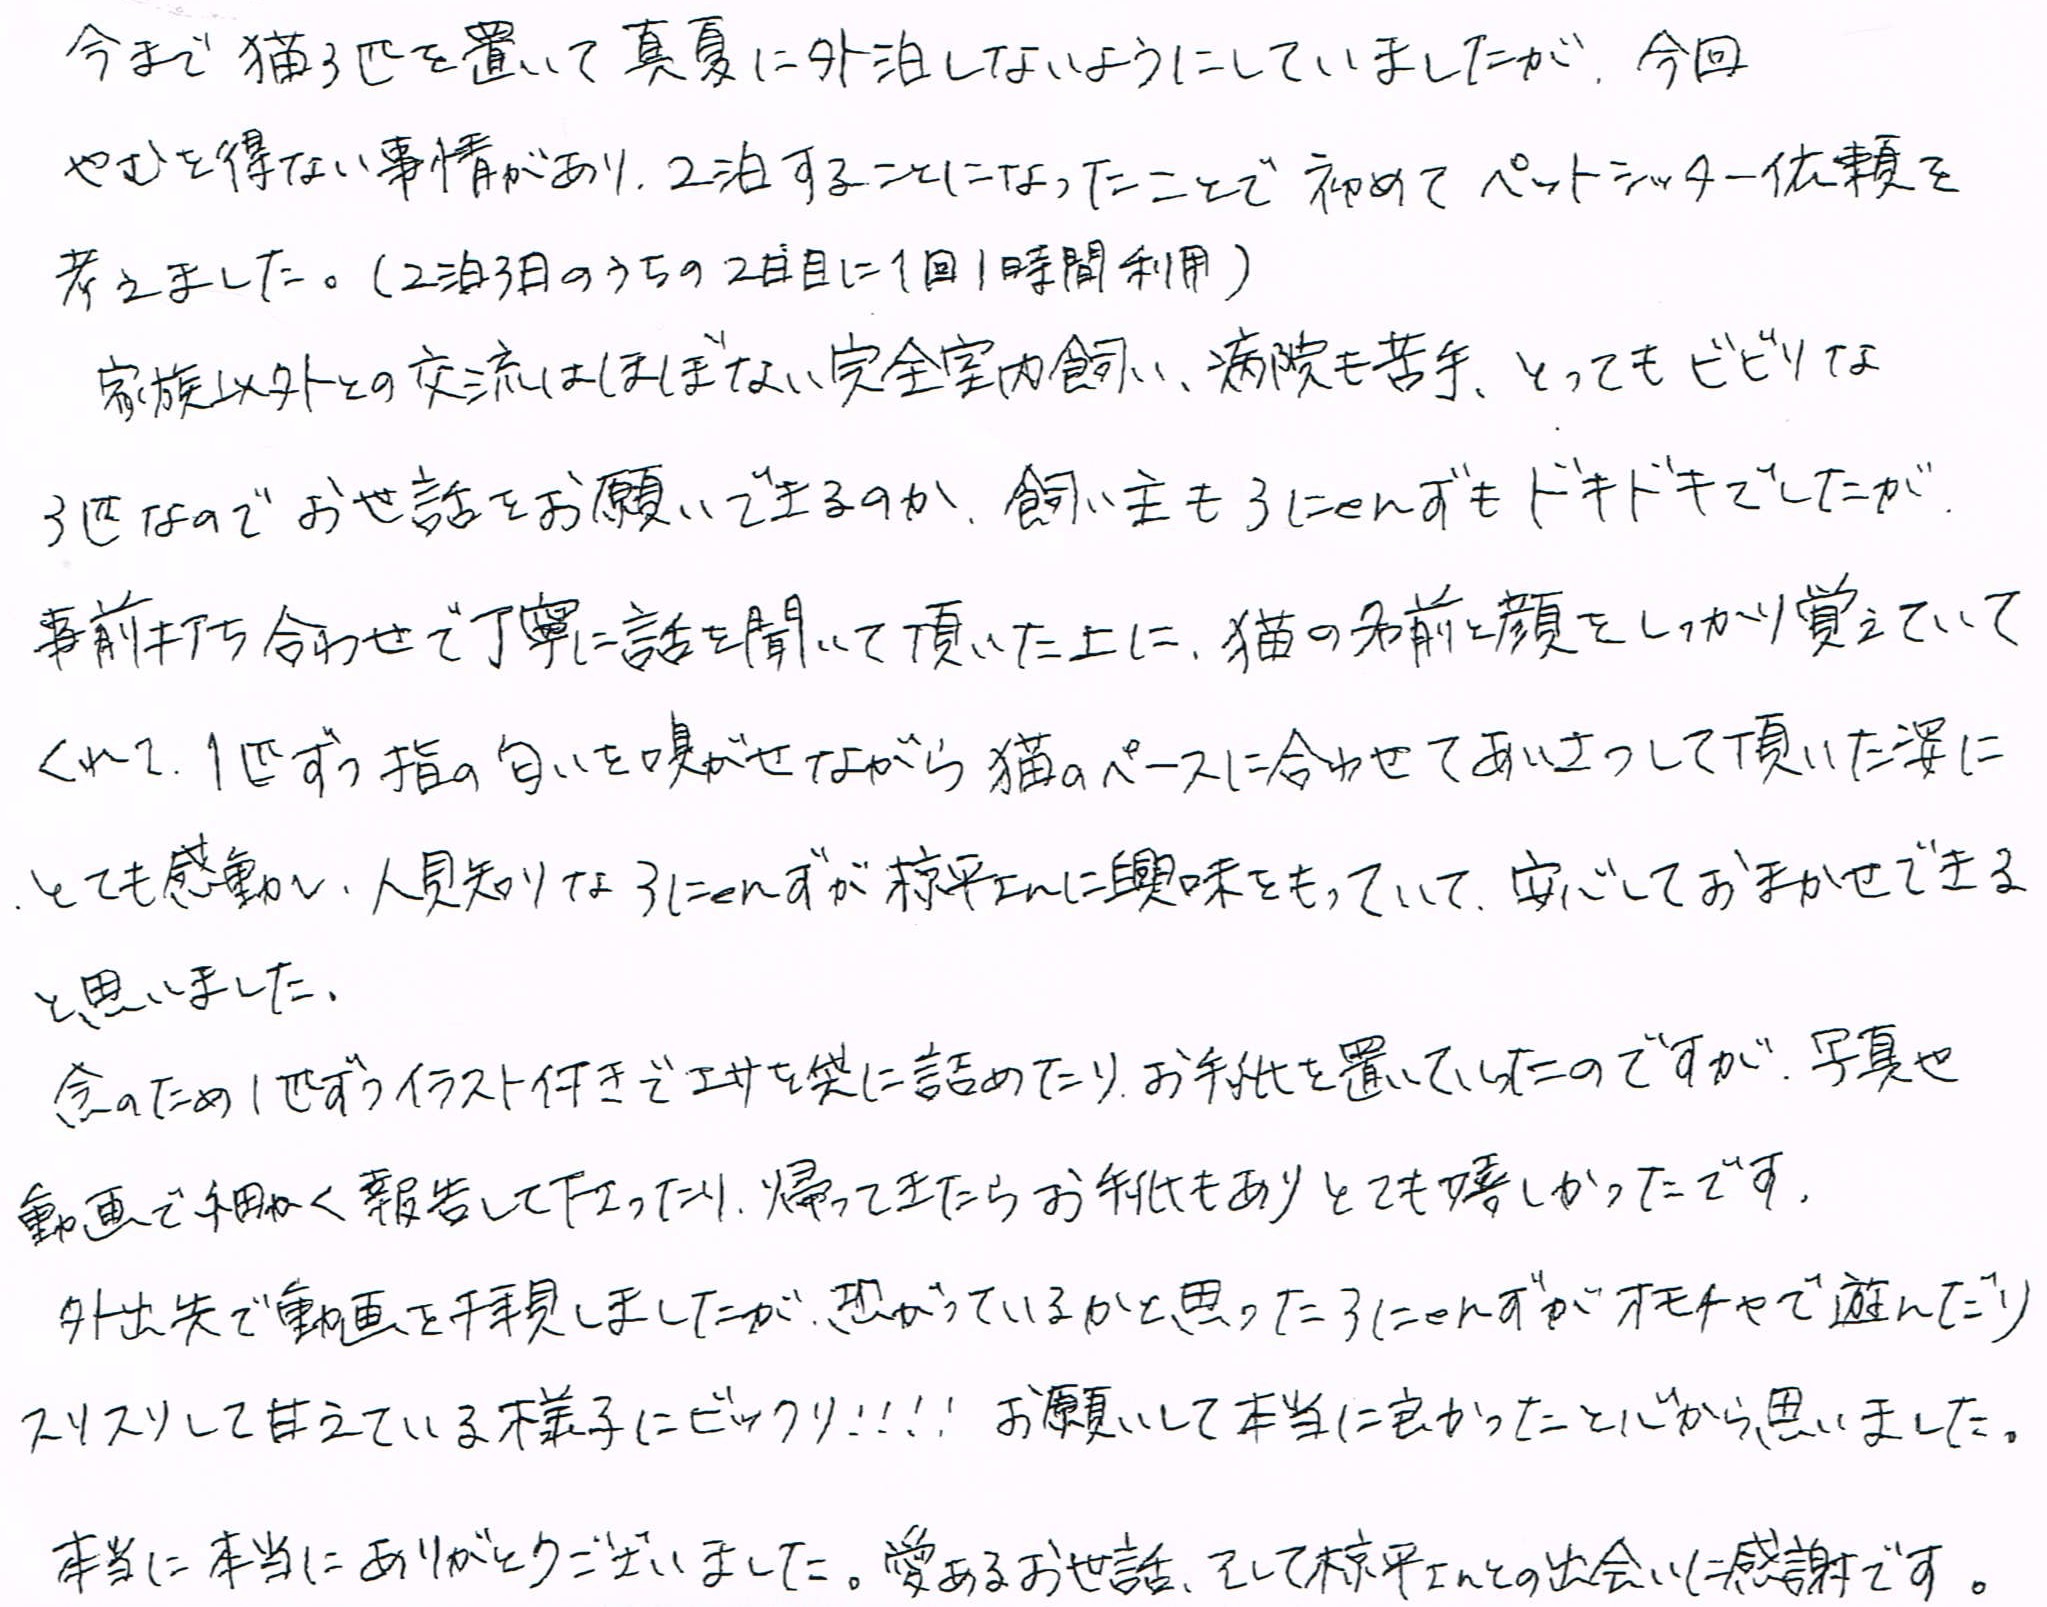 今まで猫3匹を置いて真夏に外泊しないようにしていましたが、今回
やむを得ない事情があり、2泊することになったことで初めてペットシッター依頼を
考えました。(2泊3日のうちの2日目に1回1時間利用)
家族以外との交流はほぼない完全室内飼い、病院も苦手、とってもビビリな
3匹なのでお世話をお願いできるのか、飼い主も3にゃんずもドキドキでしたが、
事前打ち合わせで丁寧に話を聞いて頂いた上に、猫の名前と顔をしっかり覚えていて
くれて、1匹ずつ指の匂いを嗅がせながら猫のペースに合わせてあいさつして頂いた姿に
とても感動し、人見知りな3にゃんずが椋平さんに興味をもっていて、安心しておまかせできる
と思いました。
念のため1匹ずつイラスト付きでエサを袋に詰めたり、お手紙を置いていったのですが、写真や
動画で細かく報告して下さったり、帰ってきたらお手紙もありとても嬉しかったです。
外出先で動画を拝見しましたが、恐がっているかと思った3にゃんずがオモチャで遊んだり
スリスリして甘えている様子にビックリ!!!! お願いして本当に良かったと心から思いました。
本当に本当にありがとうございました。愛あるお世話、そして椋平さんとの出会いに感謝です。